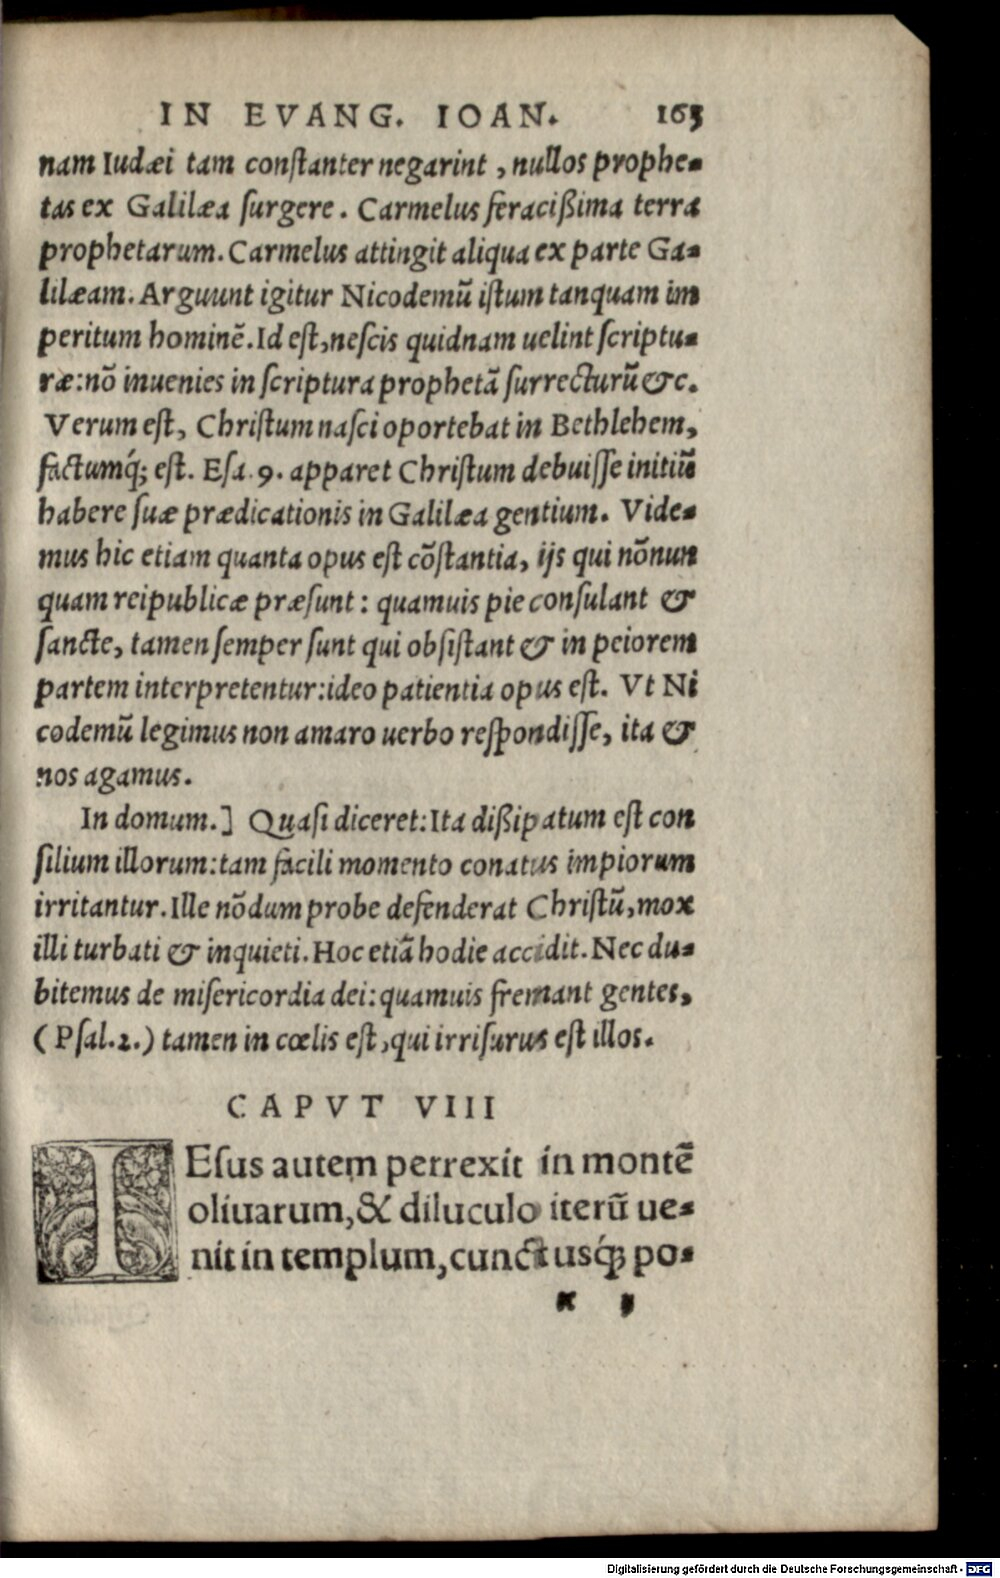 IN EVANG. IOAN. 163
nam Iudæi tam conſtanter negarint, nullos prophe-
tas ex Galilæa ſurgere. Carmelus feracißima terra
prophetarum. Carmelus attingit aliqua ex parte Ga-
lilæam. Arguunt igitur Nicodemū iſtum tanquam im
peritum hominē. Id eſt, neſcis quidnam uelint ſcriptu-
ræ: nō inuenies in ſcriptura prophetā ſurrecturū &c.
Verum eſt, Chriſtum naſci oportebat in Bethlehem,
factumq́; eſt. Eſa. 9. apparet Chriſtum debuiſſe initiū
habere ſuæ prædicationis in Galilæa gentium. Vide-
mus hic etiam quanta opus eſt cōſtantia, ijs qui nōnun
quam reipublicæ præſunt: quamuis pie conſulant &
ſancte, tamen ſemper ſunt qui obſiſtant & in peiorem
partem interpretentur: ideo patientia opus eſt. Vt Ni
codemū legimus non amaro uerbo reſpondiſſe, ita &
nos agamus.
In domum.] Quaſi diceret: Ita dißipatum eſt con
ſilium illorum: tam facili momento conatus impiorum
irritantur. Ille nōdum probe defenderat Chriſtū, mox
illi turbati & inquieti. Hoc etiā hodie accidit. Nec du-
bitemus de miſericordia dei: quamuis fremant gentes,
(Pſal. 2.) tamen in cœlis eſt, qui irriſurus eſt illos.
CAPVT VIII
IEſus autem perrexit in montē
oliuarum, & diluculo iterū ue-
nit in templum, cunctusq́; po-
x
Digitalisierung gefördert durch die Deutsche Forschungsgemeinschaft - DFG